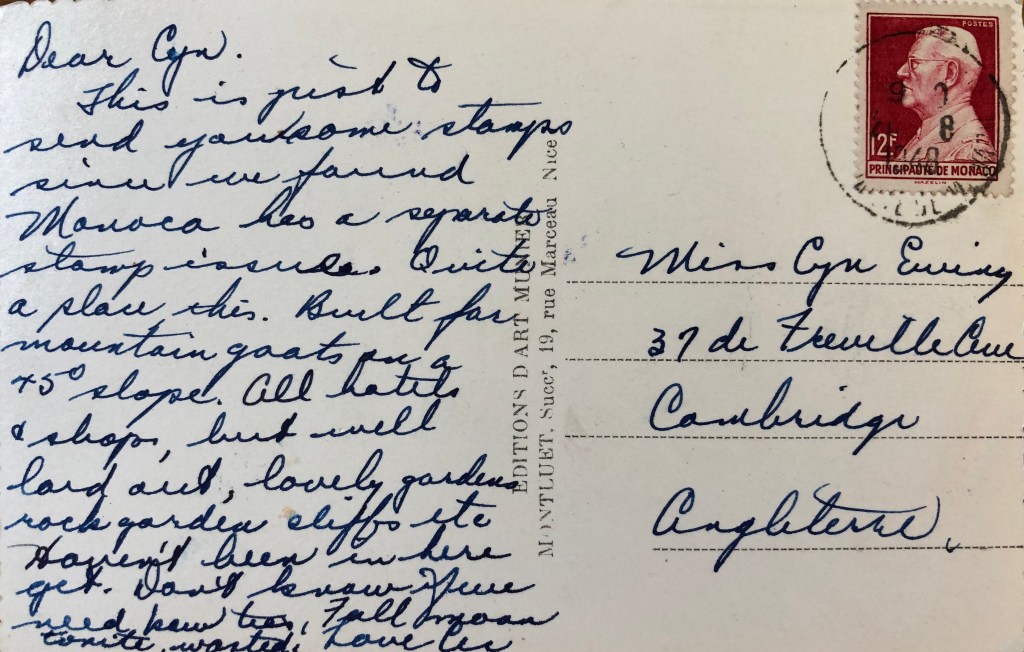 Dear Cyn.
This is just to
send you some stamps
since we found
Monoca has a separate
stamp issue. Quite
a place this. Built for
mountain goats on a
45° slope. All hotels
& shops, but well
laid out, lovely gardens
rock garden cliffs etc
Haven't been in here
yet. Don't know if we
need bow ties, Full moon
tonite, wasted. Love
EDITIONS D'ART MUNIER
MONTLUET. Succr, 19, rue Marceau Nice
POSTES
12F
PRINCIPAUTÉ DE MONACO
MAZELIN
8
1948
Miss Cyn Ewing
37 de Freville Ave
Cambridge
Angleterre